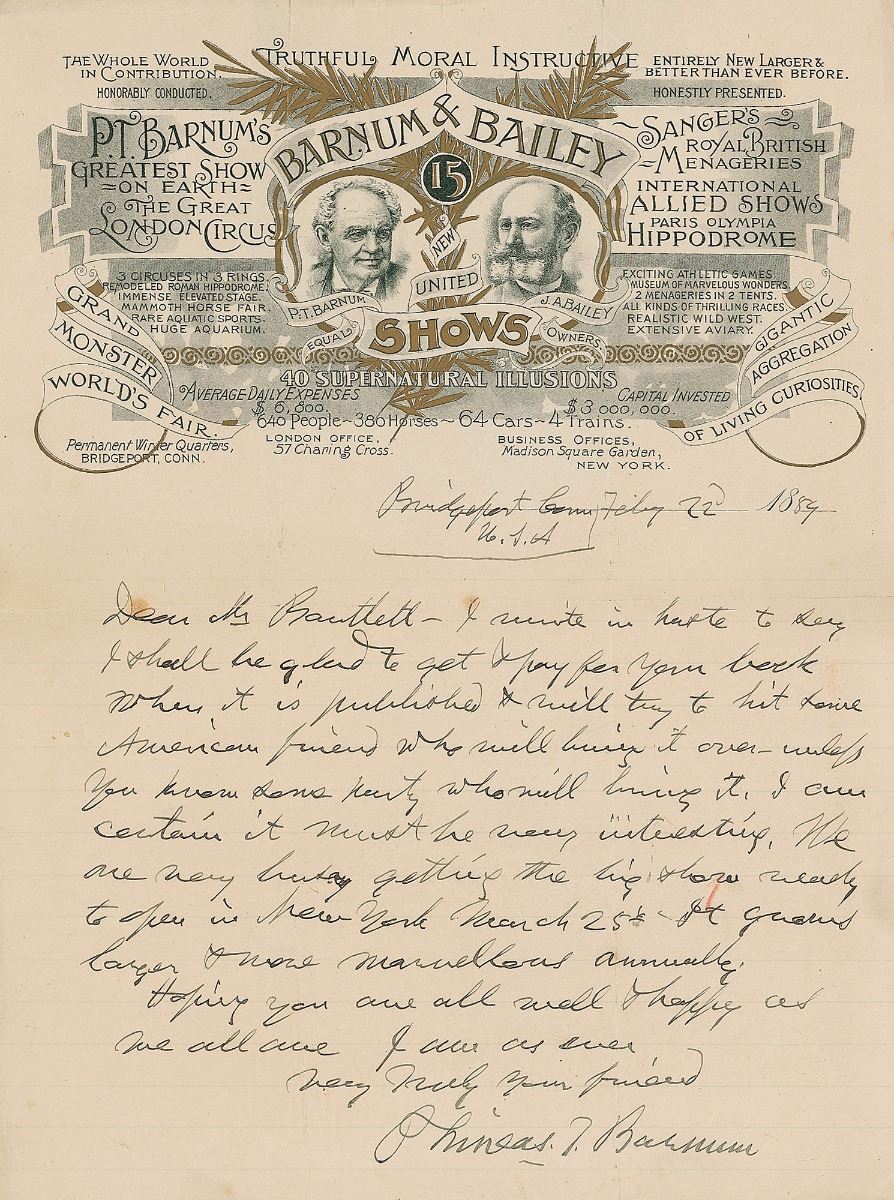 THE WHOLE WORLD
IN CONTRIBUTION.
HONORABLY CONDUCTED.
TRUTHFUL MORAL INSTRUCTIVE
ENTIRELY NEW LARGER &
BETTER THAN EVER BEFORE.
HONESTLY PRESENTED.
P.T. BARNUM'S
GREATEST SHOW
=ON EARTH=
THE GREAT
LONDON CIRCUS
BARNUM & BAILEY
15
NEW
UNITED
SHOWS
P.T. BARNUM
J.A. BAILEY
EQUAL
OWNERS
SANGER'S
ROYAL BRITISH
MENAGERIES
INTERNATIONAL
ALLIED SHOWS
PARIS OLYMPIA
HIPPODROME
3 CIRCUSES IN 3 RINGS.
REMODELED ROMAN HIPPODROME.
IMMENSE ELEVATED STAGE.
MAMMOTH HORSE FAIR.
RARE AQUATIC SPORTS.
HUGE AQUARIUM.
EXCITING ATHLETIC GAMES
MUSEUM OF MARVELOUS WONDERS.
2 MENAGERIES IN 2 TENTS.
ALL KINDS OF THRILLING RACES.
REALISTIC WILD WEST.
EXTENSIVE AVIARY.
GRAND
MONSTER
WORLD'S FAIR.
GIGANTIC
AGGREGATION
OF LIVING CURIOSITIES.
40 SUPERNATURAL ILLUSIONS
AVERAGE DAILY EXPENSES
$ 6,800.
CAPITAL INVESTED
$ 3 000,000.
640 People ~ 380 Horses ~ 64 Cars ~ 4 Trains.
Permanent Winter Quarters,
BRIDGEPORT, CONN.
LONDON OFFICE,
57 Charing Cross.
BUSINESS OFFICES,
Madison Square Garden,
NEW YORK.
Bridgeport Conn Feby 22d 1889
U.S.A
Dear Mr Bartlett - I write in haste to say
I shall be glad to get & pay for your book
when it is published & will try to hit some
American friend who will bring it over - unless
you know some party who will bring it. I am
certain it must be very interesting. We
are very busy getting the big show ready
to open in New York March 25th - It grows
larger & more marvellous annually.
Hoping you are all well & happy as
we all are I am as ever
very truly your friend
Phineas. T. Barnum